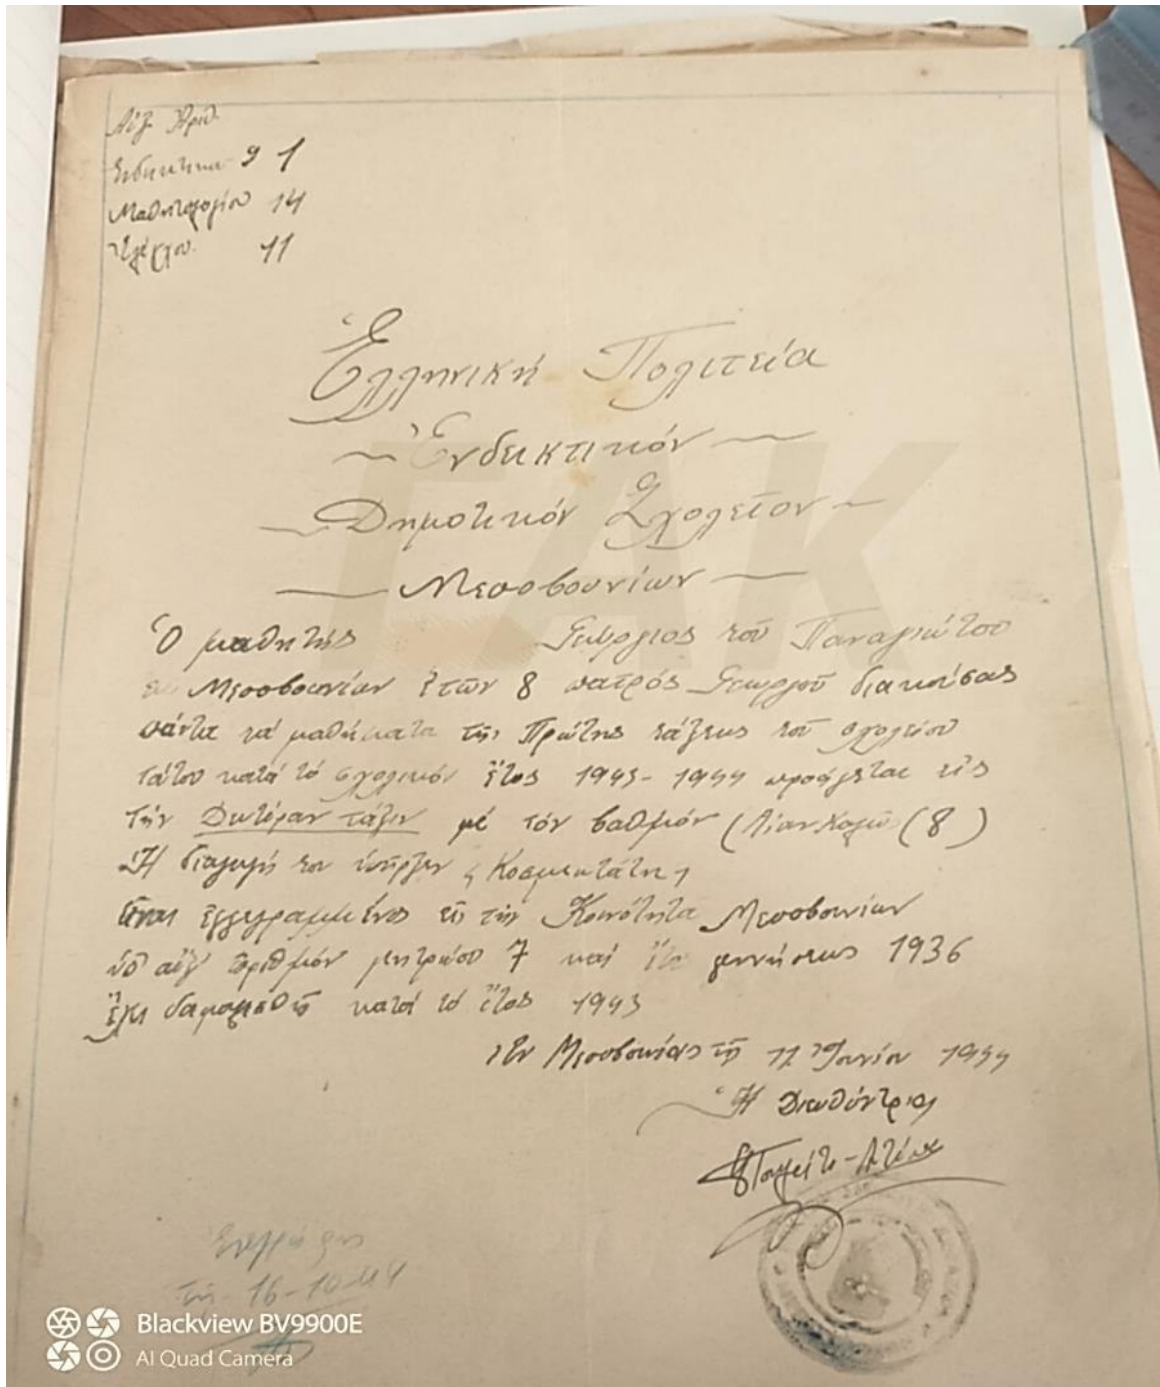 Αὔξ. Ἀριθ.
Ἐνδεικτικοῦ 9 1
Μαθητολογίου 14
Ἐλέγχου. 11
Ἑλληνική Πολιτεία
Ἐνδεικτικόν
Δημοτικόν Σχολεῖον
Μεσοβουνίων
Ὁ μαθητής Γεώργιος τοῦ Παναγιώτου
ἐκ Μεσοβουνίων ἐτῶν 8 πατρός Γεωργίου διακούσας
πάντα τά μαθήματα τῆς Πρώτης τάξεως τοῦ σχολείου
τούτου κατά τό σχολικόν ἔτος 1943-1944 προάγεται εἰς
τήν Δευτέραν τάξιν μέ τόν βαθμόν (Λίαν Καλῶς (8)
Ἡ διαγωγή του ὑπῆρξεν Κοσμιωτάτη
Εἶναι ἐγγεγραμμένος εἰς τήν Κοινότητα Μεσοβουνίων
ὑπ' αὔξ ἀριθμόν μητρώου 7 καί ἔτος γεννήσεως 1936
ἔχει δαμαλισθῆ κατά τό ἔτος 1943
Ἐν Μεσοβουνίοις τῇ 17 Ἰουνίου 1944
Ἡ Διευθύντρια
Ἐνεγράφη
τῇ 16-10-44
ΓΑΚ
Blackview BV9900E
AI Quad Camera